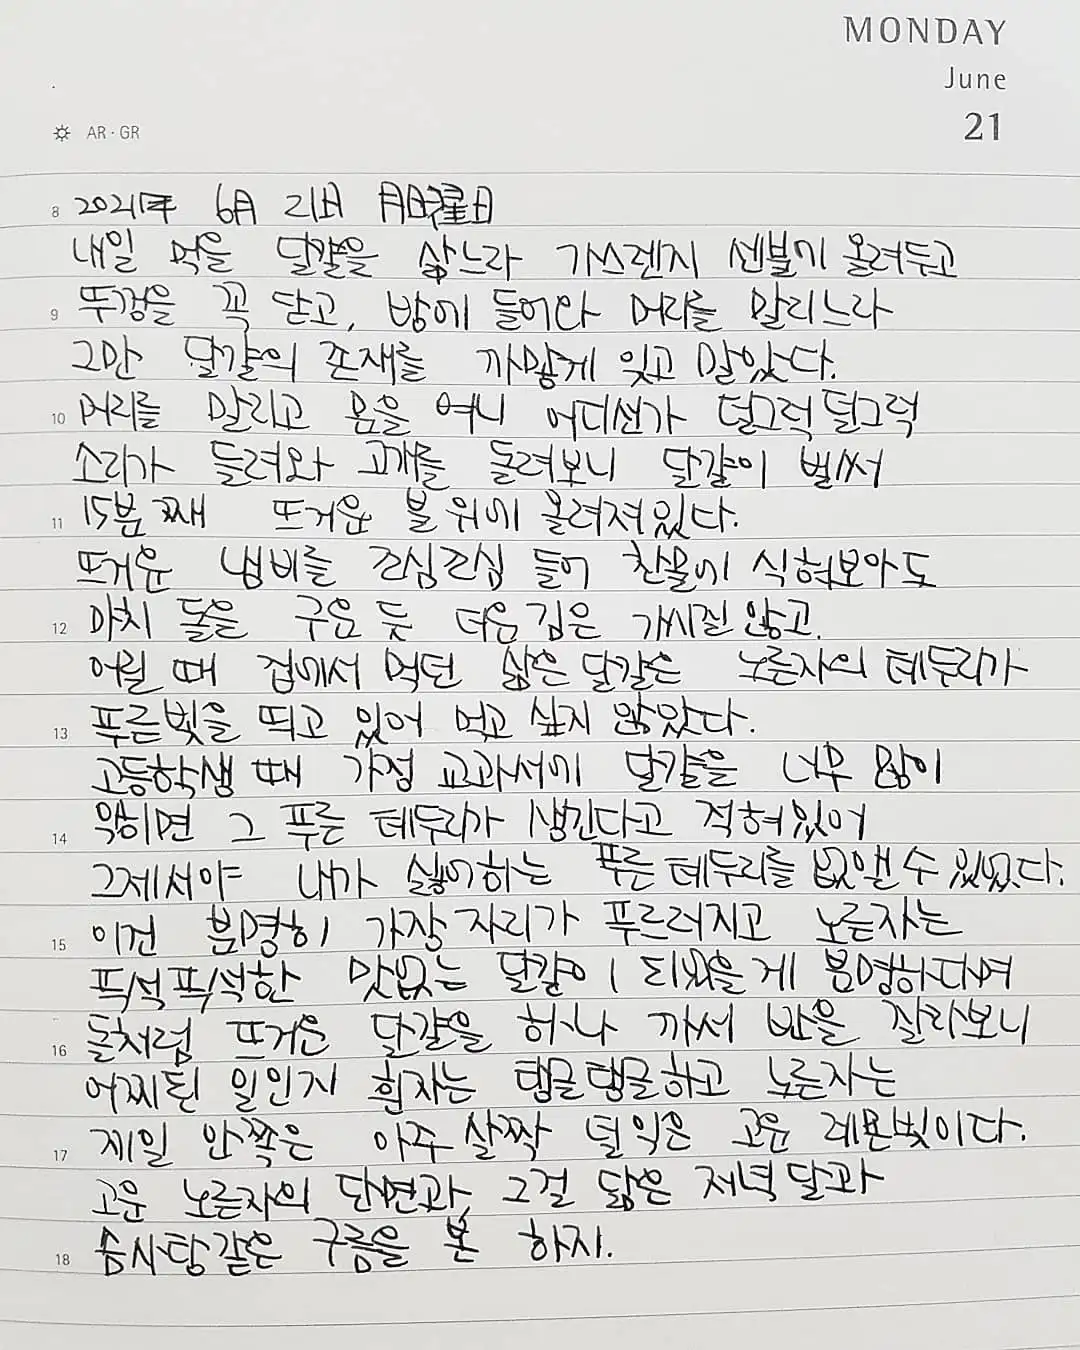 MONDAY
June
21
AR · GR
8 2021年 6月 21日 月曜日
내일 먹을 달걀을 삶느라 가스렌지 센불에 올려두고
9 뚜껑을 꼭 닫고, 방에 들어와 머리를 말리느라
그만 달걀의 존재를 까맣게 잊고 말았다.
10 머리를 말리고 문을 여니 어디선가 덜그럭덜그럭
소리가 들려와 고개를 돌려보니 달걀이 벌써
11 15분째 뜨거운 불 위에 올려져있다.
뜨거운 냄비를 조심조심 들어 찬물에 식혀보아도
12 마치 돌을 구운 듯 더운 김은 가시질 않고.
어릴 때 집에서 먹던 삶은 달걀은 노른자의 테두리가
13 푸른빛을 띄고 있어 먹고 싶지 않았다.
고등학생 때 가정 교과서에 달걀을 너무 많이
14 익히면 그 푸른 테두리가 생긴다고 적혀있어
그제서야 내가 싫어하는 푸른 테두리를 없앨 수 있었다.
15 이건 분명히 가장자리가 푸르러지고 노른자는
퍽석퍽석한 맛없는 달걀이 되었을게 분명하다며
16 돌처럼 뜨거운 달걀을 하나 까서 반을 잘라보니
어찌된 일인지 흰자는 탱글탱글하고 노른자는
17 제일 안쪽은 아주 살짝 덜 익은 고운 레몬빛이다.
고운 노른자의 단면과, 그걸 닮은 저녁달과
18 솜사탕같은 구름을 본 하지.